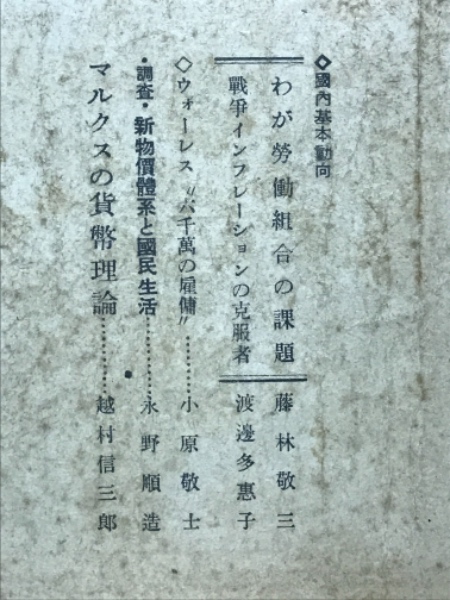 ◇國內基本動向
わが勞働組合の課題 藤林敬三
戰爭インフレーションの克服者 渡邊多惠子
◇ウォーレス〝六千萬の雇傭〟………小原敬士
・調査・新物價體系と國民生活………永野順造
マルクスの貨幣理論………越村信三郎